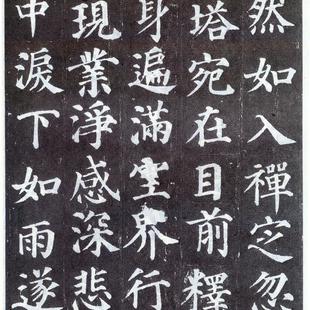 然如入禪定忽
塔宛在目前釋
身遍滿空界行
現業淨感深悲
中淚下如雨遂